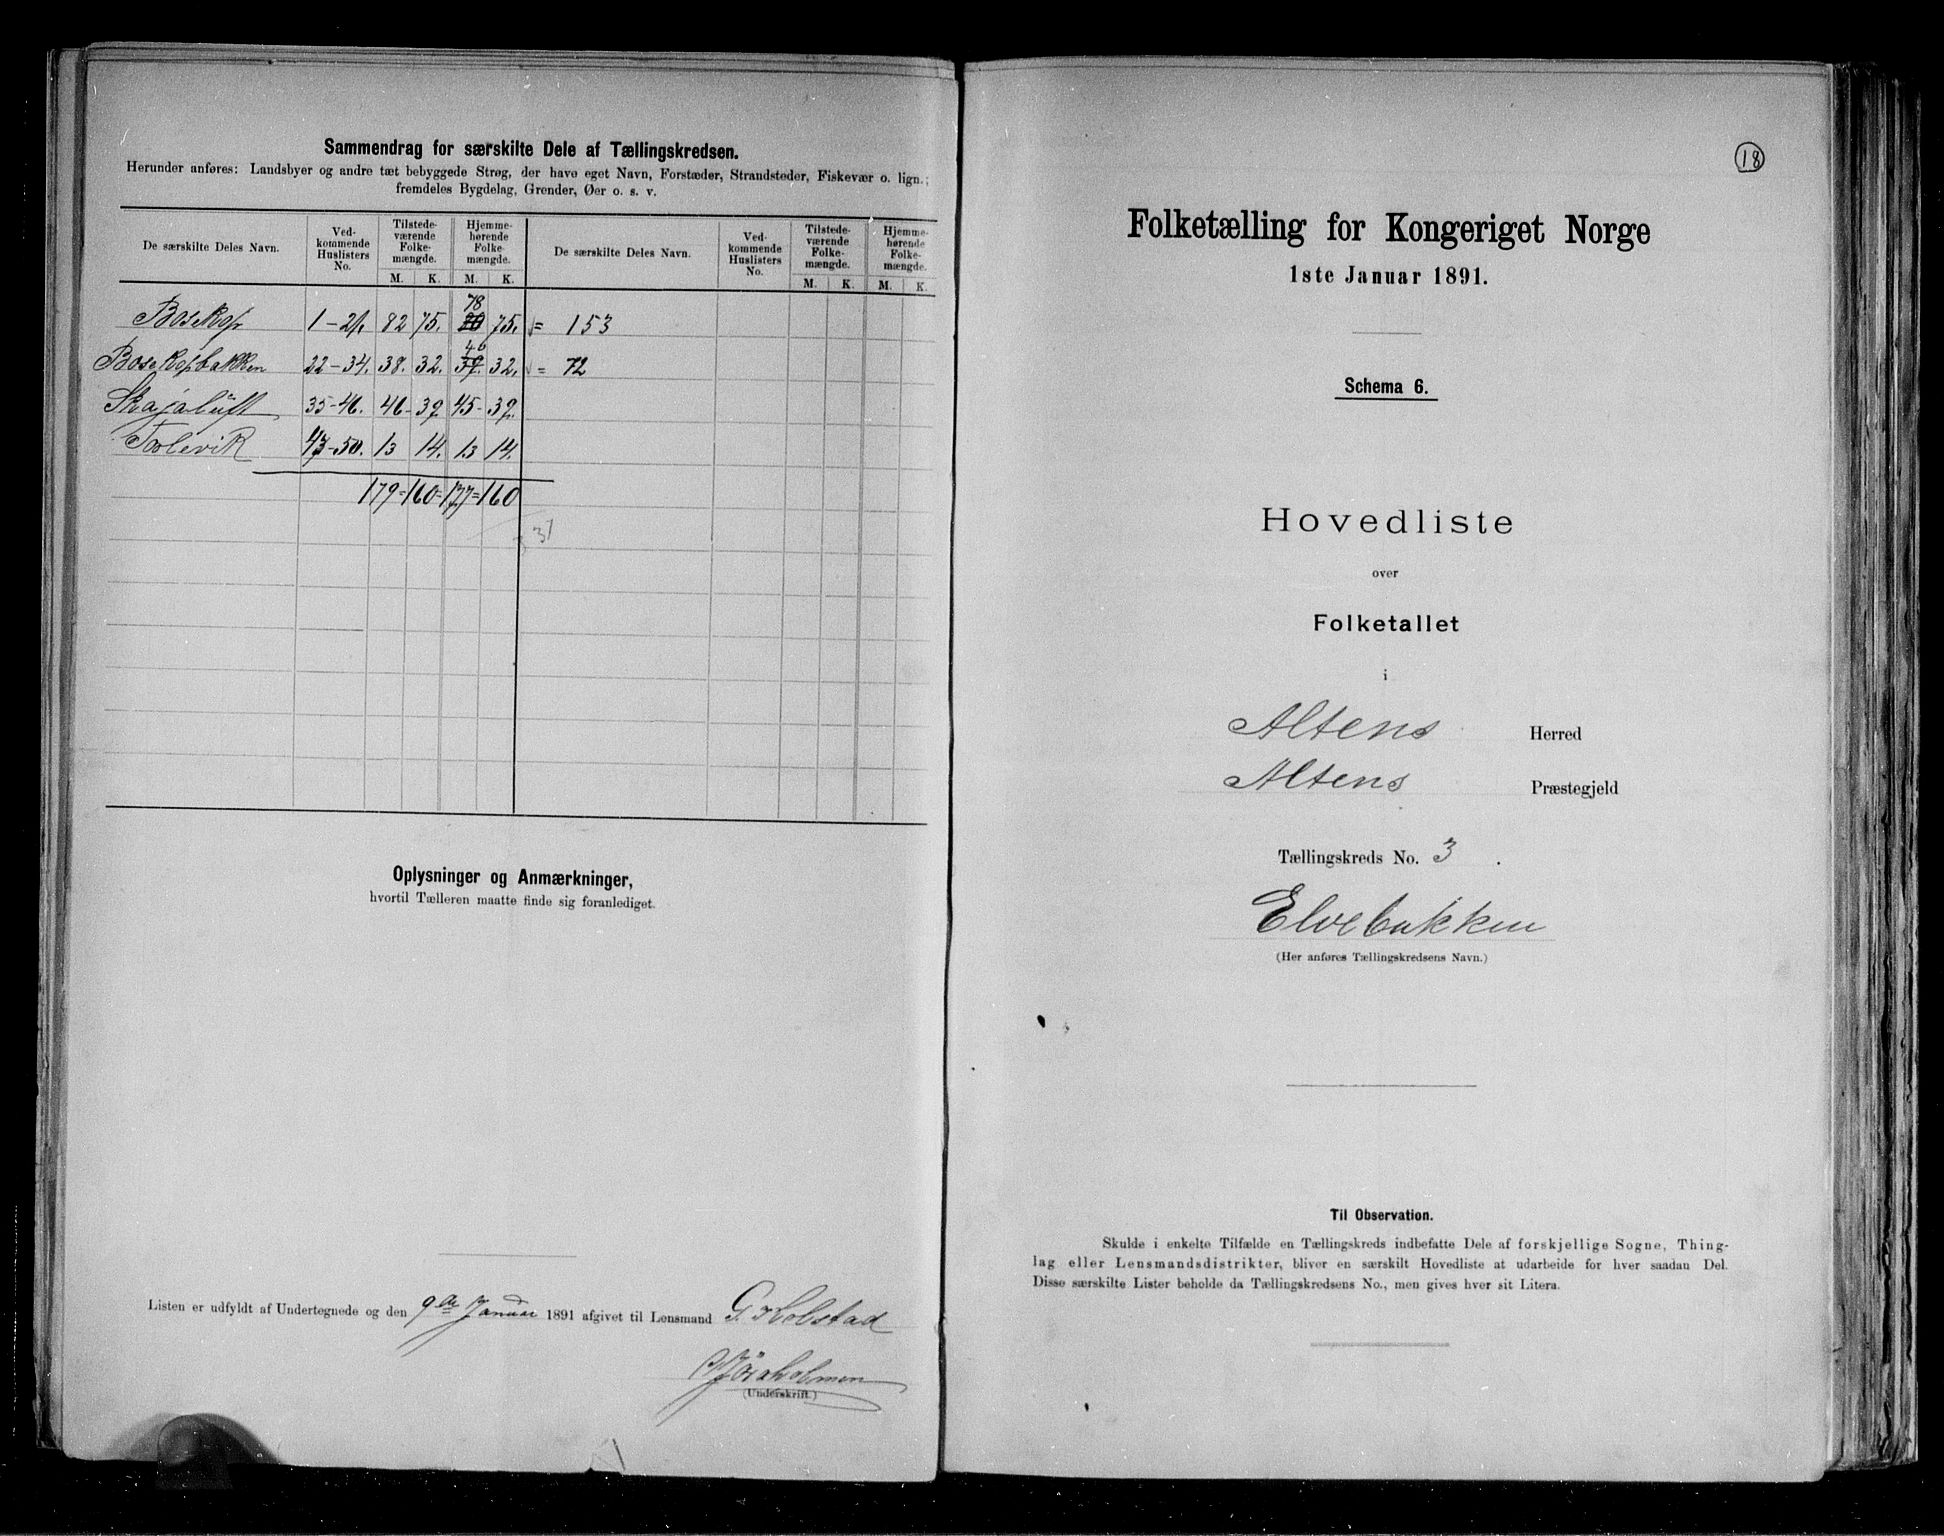 Sammendrag for særskilte Dele af Tællingskredsen.
Herunder anføres: Landsbyer og andre tæt bebyggede Strøg, der have eget Navn, Forstæder, Strandsteder, Fiskevær o. lign.;
fremdeles Bygdelag, Grender, Øer o. s. v.
De særskilte Deles Navn. Ved-kommende Huslisters No. Tilstede-værende Folke-mængde. Hjemme-hørende Folke-mængde. De særskilte Deles Navn. Ved-kommende Huslisters No. Tilstede-værende Folke-mængde. Hjemme-hørende Folke-mængde.
M. K. M. K. M. K. M. K.
Bosekop 1-21. 82 75. 78 75. = 153
Bosekopbakken 22-34. 38. 32. 40 32. = 72
Skajaluft 35-46. 46- 39 45- 39.
47-50. 13 14. 13 14.
179=160=177=160
Oplysninger og Anmærkninger,
hvortil Tælleren maatte finde sig foranlediget.
Listen er udfyldt af Undertegnede og den 9de Januar 1891 afgivet til Lensmand G. Holstad
(Underskrift.)
18
Folketælling for Kongeriget Norge
1ste Januar 1891.
Schema 6.
Hovedliste
over
Folketallet
i
Altens Herred
Altens Præstegjeld
Tællingskreds No. 3.
Elvebakken
(Her anføres Tællingskredsens Navn.)
Til Observation.
Skulde i enkelte Tilfælde en Tællingskreds indbefatte Dele af forskjellige Sogne, Thing-
lag eller Lensmandsdistrikter, bliver en særskilt Hovedliste at udarbeide for hver saadan Del.
Disse særskilte Lister beholde da Tællingskredsens No., men gives hver sit Litera.